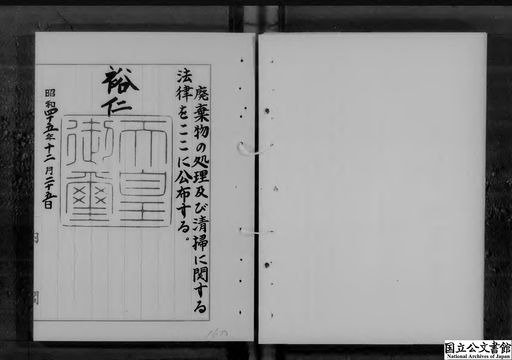 廃棄物の処理及び清掃に関する
法律をここに公布する。
裕仁
天皇
御璽
昭和四十五年十二月二十五日
内
閣
国立公文書館
National Archives of Japan